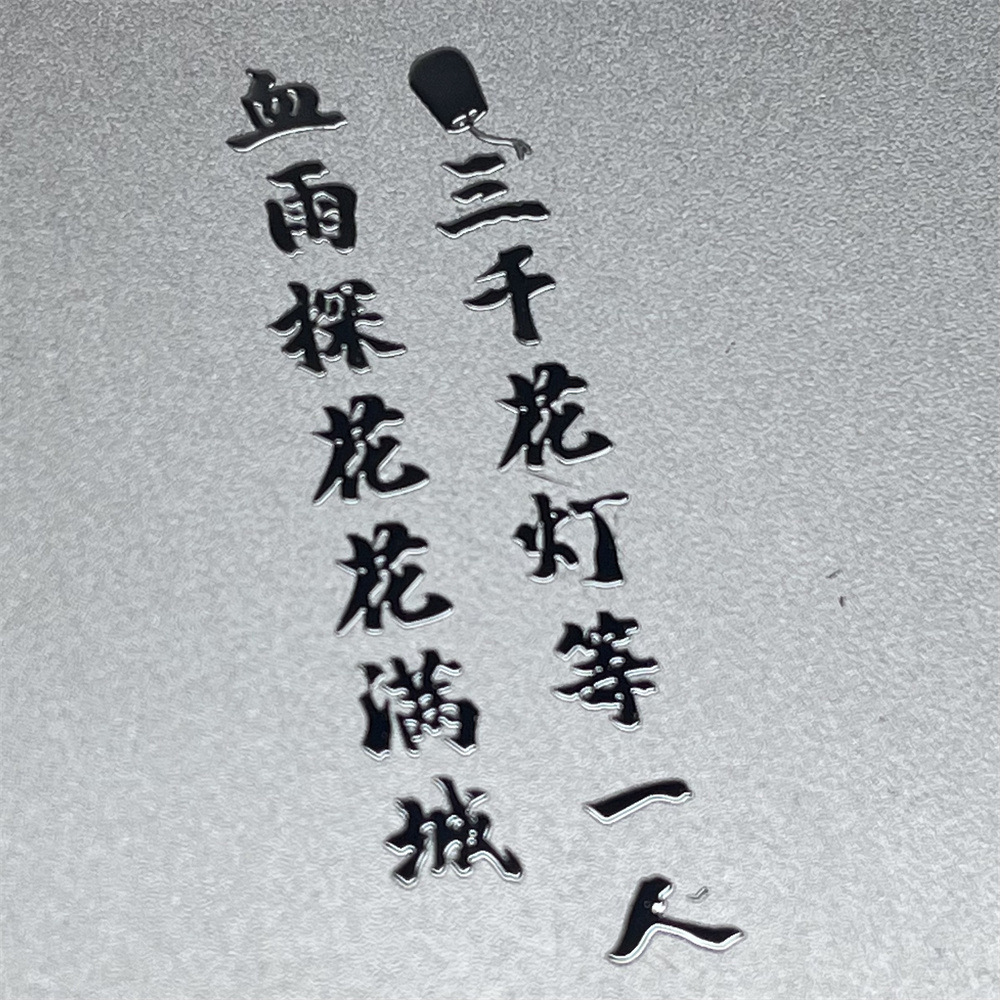 三千花灯等一人
血雨探花花满城